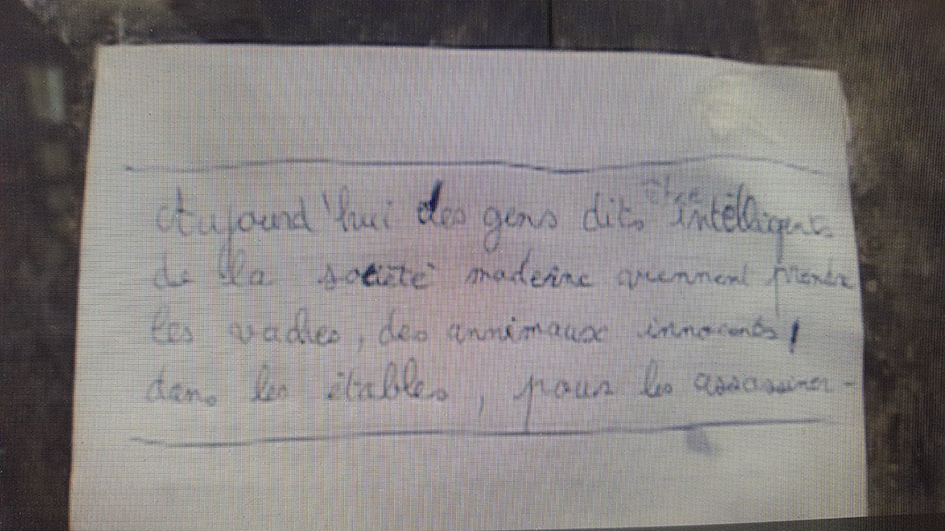 Aujourd'hui des gens dits être intélligents
de la société moderne viennent prendre
les vaches, des annimaux innocents,
dans les étables, pour les assassiner-